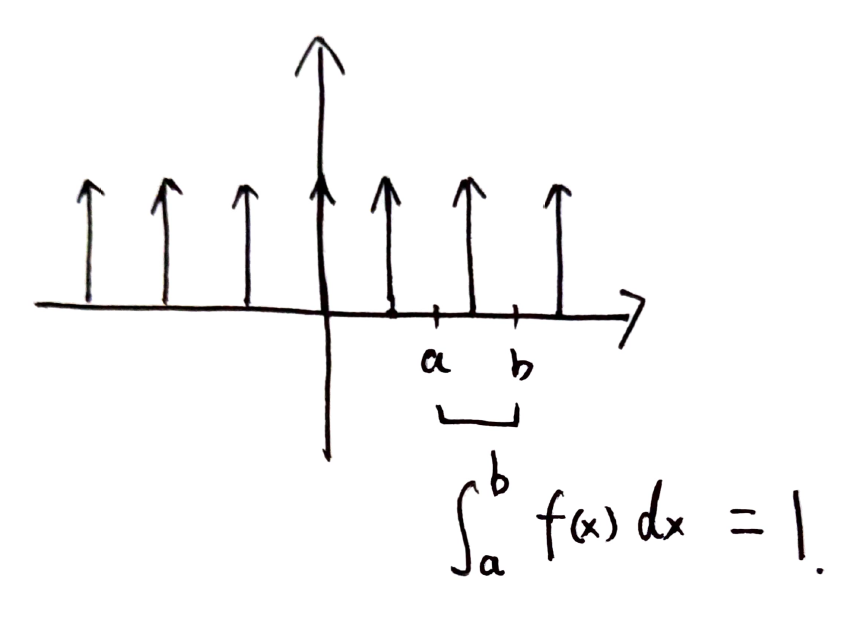 a b
∫_a^b f(x) dx = 1.